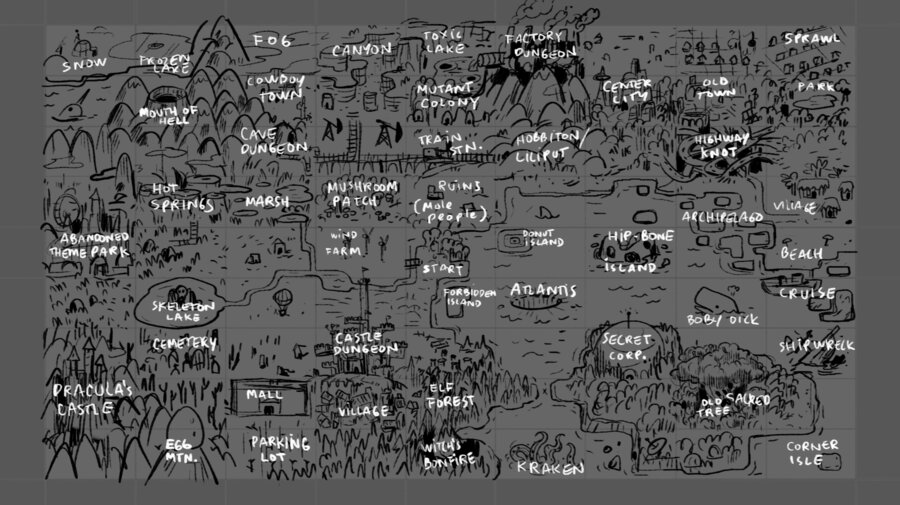 SNOW
FROZEN
LAKE
FOG
CANYON
TOXIC
LAKE
FACTORY
DUNGEON
SPRAWL
MOUTH OF
HELL
COWBOY
TOWN
MUTANT
COLONY
CENTER
CITY
OLD
TOWN
PARK
CAVE
DUNGEON
TRAIN
STN.
HOBBITON/
LILIPUT
HIGHWAY
KNOT
HOT
SPRINGS
MARSH
MUSHROOM
PATCH
RUINS
(MOLE
PEOPLE)
ARCHIPELAGO
VILLAGE
ABANDONED
THEME PARK
WIND
FARM
START
DONUT
ISLAND
HIP-BONE
ISLAND
BEACH
SKELETON
LAKE
FORBIDDEN
ISLAND
ATLANTIS
BOBY DICK
CRUISE
CEMETERY
CASTLE
DUNGEON
SECRET
CORP.
SHIPWRECK
DRACULA'S
CASTLE
MALL
VILLAGE
ELF
FOREST
OLD SACRED
TREE
EGG
MTN.
PARKING
LOT
WITCH'S
BONFIRE
KRAKEN
CORNER
ISLE